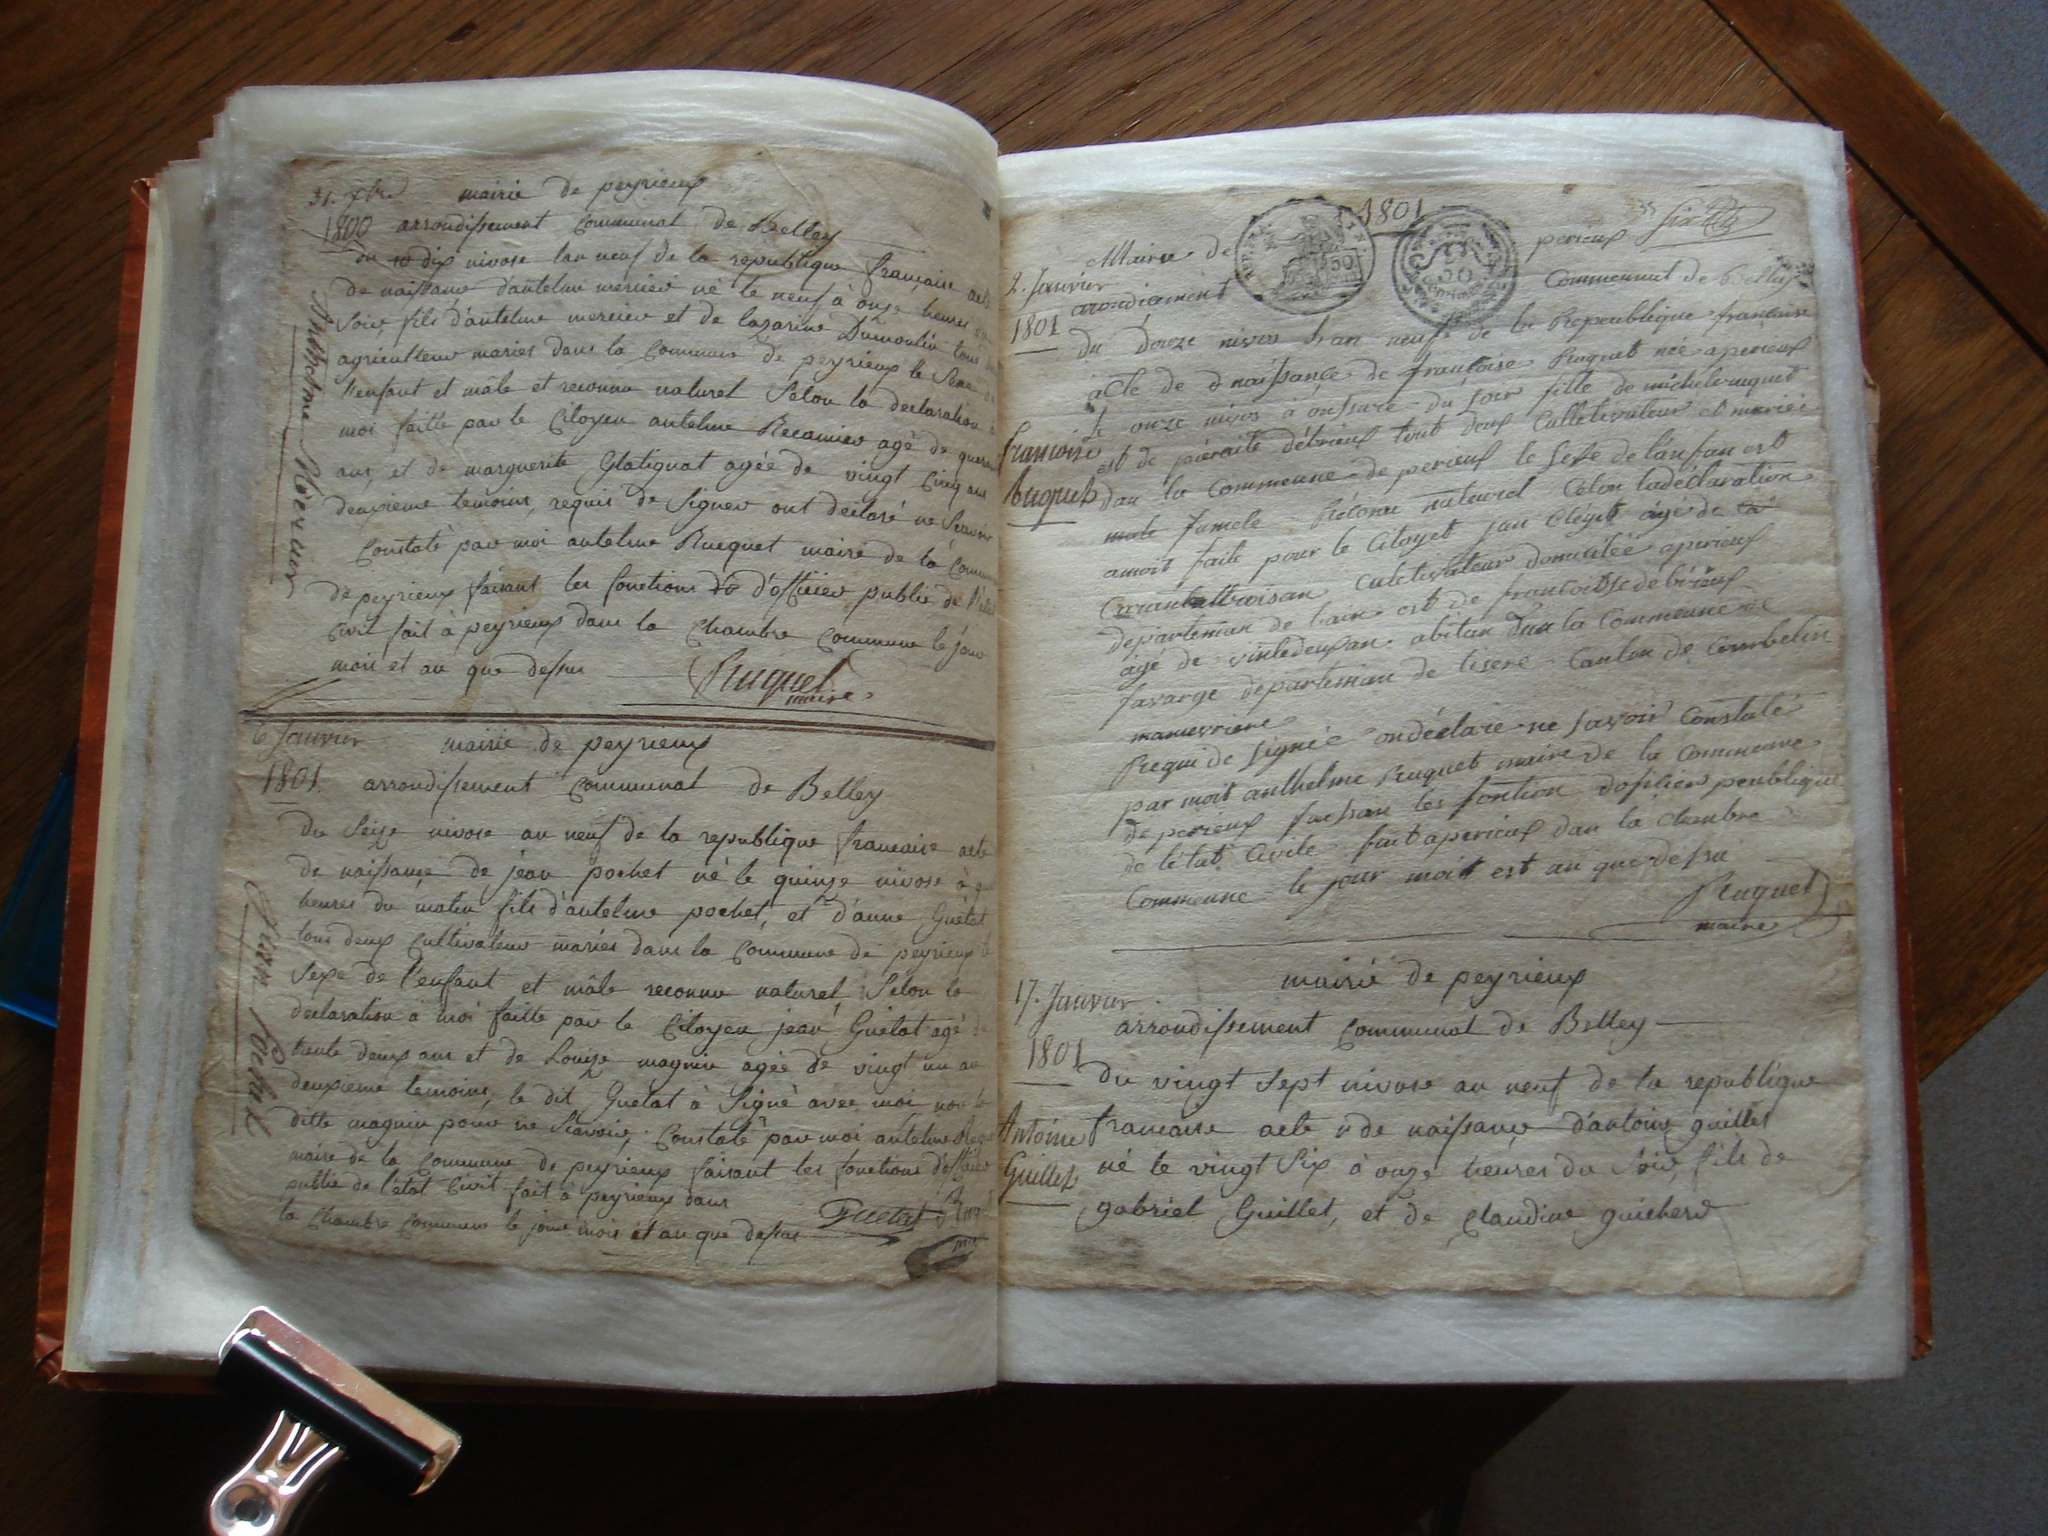 31. xbre mairie de peyrieux
1800 arrondissement Communal de Belley
du dix nivose lan neuf de la republique française acte
de naissance d'antelme mercier né le neuf à onze heures du
soir, fils d'antelme mercier et de lazarine Dumoulin tous
agriculteur mariés dans la Commune de peyrieux le sexe de
l'enfant et mâle et reconnu naturel Selon la declaration à
moi faitte par le Citoyen antelme Recamier agé de quarante
ans, et de marguerite Glatignat agée de vingt Cinq ans
deuxieme temoins, requis de Signer ont declaré ne Scavoir
Constaté par moi antelme Ruquet maire de la Commune
de peyrieux faisant les fonctions d'officier public de l'état
Civil fait à peyrieux dans la Chambre Commune le jour
mois et an que dessus
Ruquet
maire
Anthelme Mercier
6 Janvier mairie de peyrieux
1801. arrondissement Communal de Belley
du Seize nivose an neuf de la republique francaise acte
de naissance de jean pochet né le quinze nivose à
heures du matin fils d'antelme pochet, et d'anne Guétat
tous deux Cultivateur mariés dans la Commune de peyrieux le
Sexe de l'enfant et mâle reconnu naturel, Selon la
declaration à moi faitte par le Citoyen jean Guétat agé de
trente deux ans et de Louize magnin agée de vingt un an
deuxieme temoins, le dit Guetat à Signé avec moi non la
ditte magnin pour ne Scavoir, Constaté par moi antelme
maire de la Commune de peyrieux faisant les fonctions d'officier
public de l'état Civil fait à peyrieux dans
la Chambre Commune le jour mois et an que dessus Guetat
Jean Pochet
1801
Mairie de perieux
2. Janvier arondicement Commeunal de Belley
1801
du douze nivos lan neuf de la Repeublique francoise
acte de naissance de francoise Ruquet née a perieux
le onze nivos à onsure du soir fille de michel ruquet
est de débrieux tout deux Culletivateur et mariéi
dan la Commeunne de perieux le sexe de lanfan est
male fumele Réconu nateurel Celon la déclaration
amoit faite pour le Citoyet jan agé de
Carantettroisan Culetivateur domicilée a perieux
departeman de lain est de francoisse debrieux
agé de vintedeuxan abitan dan la Commeunne de
favarge departeman de lisere Canton de Corbelin
maneuvriere
Requi de signée on déclare ne savoir Constaté
par moit anthelme Ruquet maire de la Commeunne
de perieux faisan les fontion dofisier peublique
de létat Civile fait a perieux dan la chambre
Commeunne le jour moit est an que desu
Ruquet
maire
francoise
Ruquet
mairie de peyrieux
17. Janvier
arrondissement Communal de Belley
1801
du vingt sept nivose an neuf de la republique
francaise acte de naissance d'antoine guillet
né le vingt Six à onze heures du Soir, fils de
gabriel Guillet, et de Claudine guicherd
Antoine
Guillet